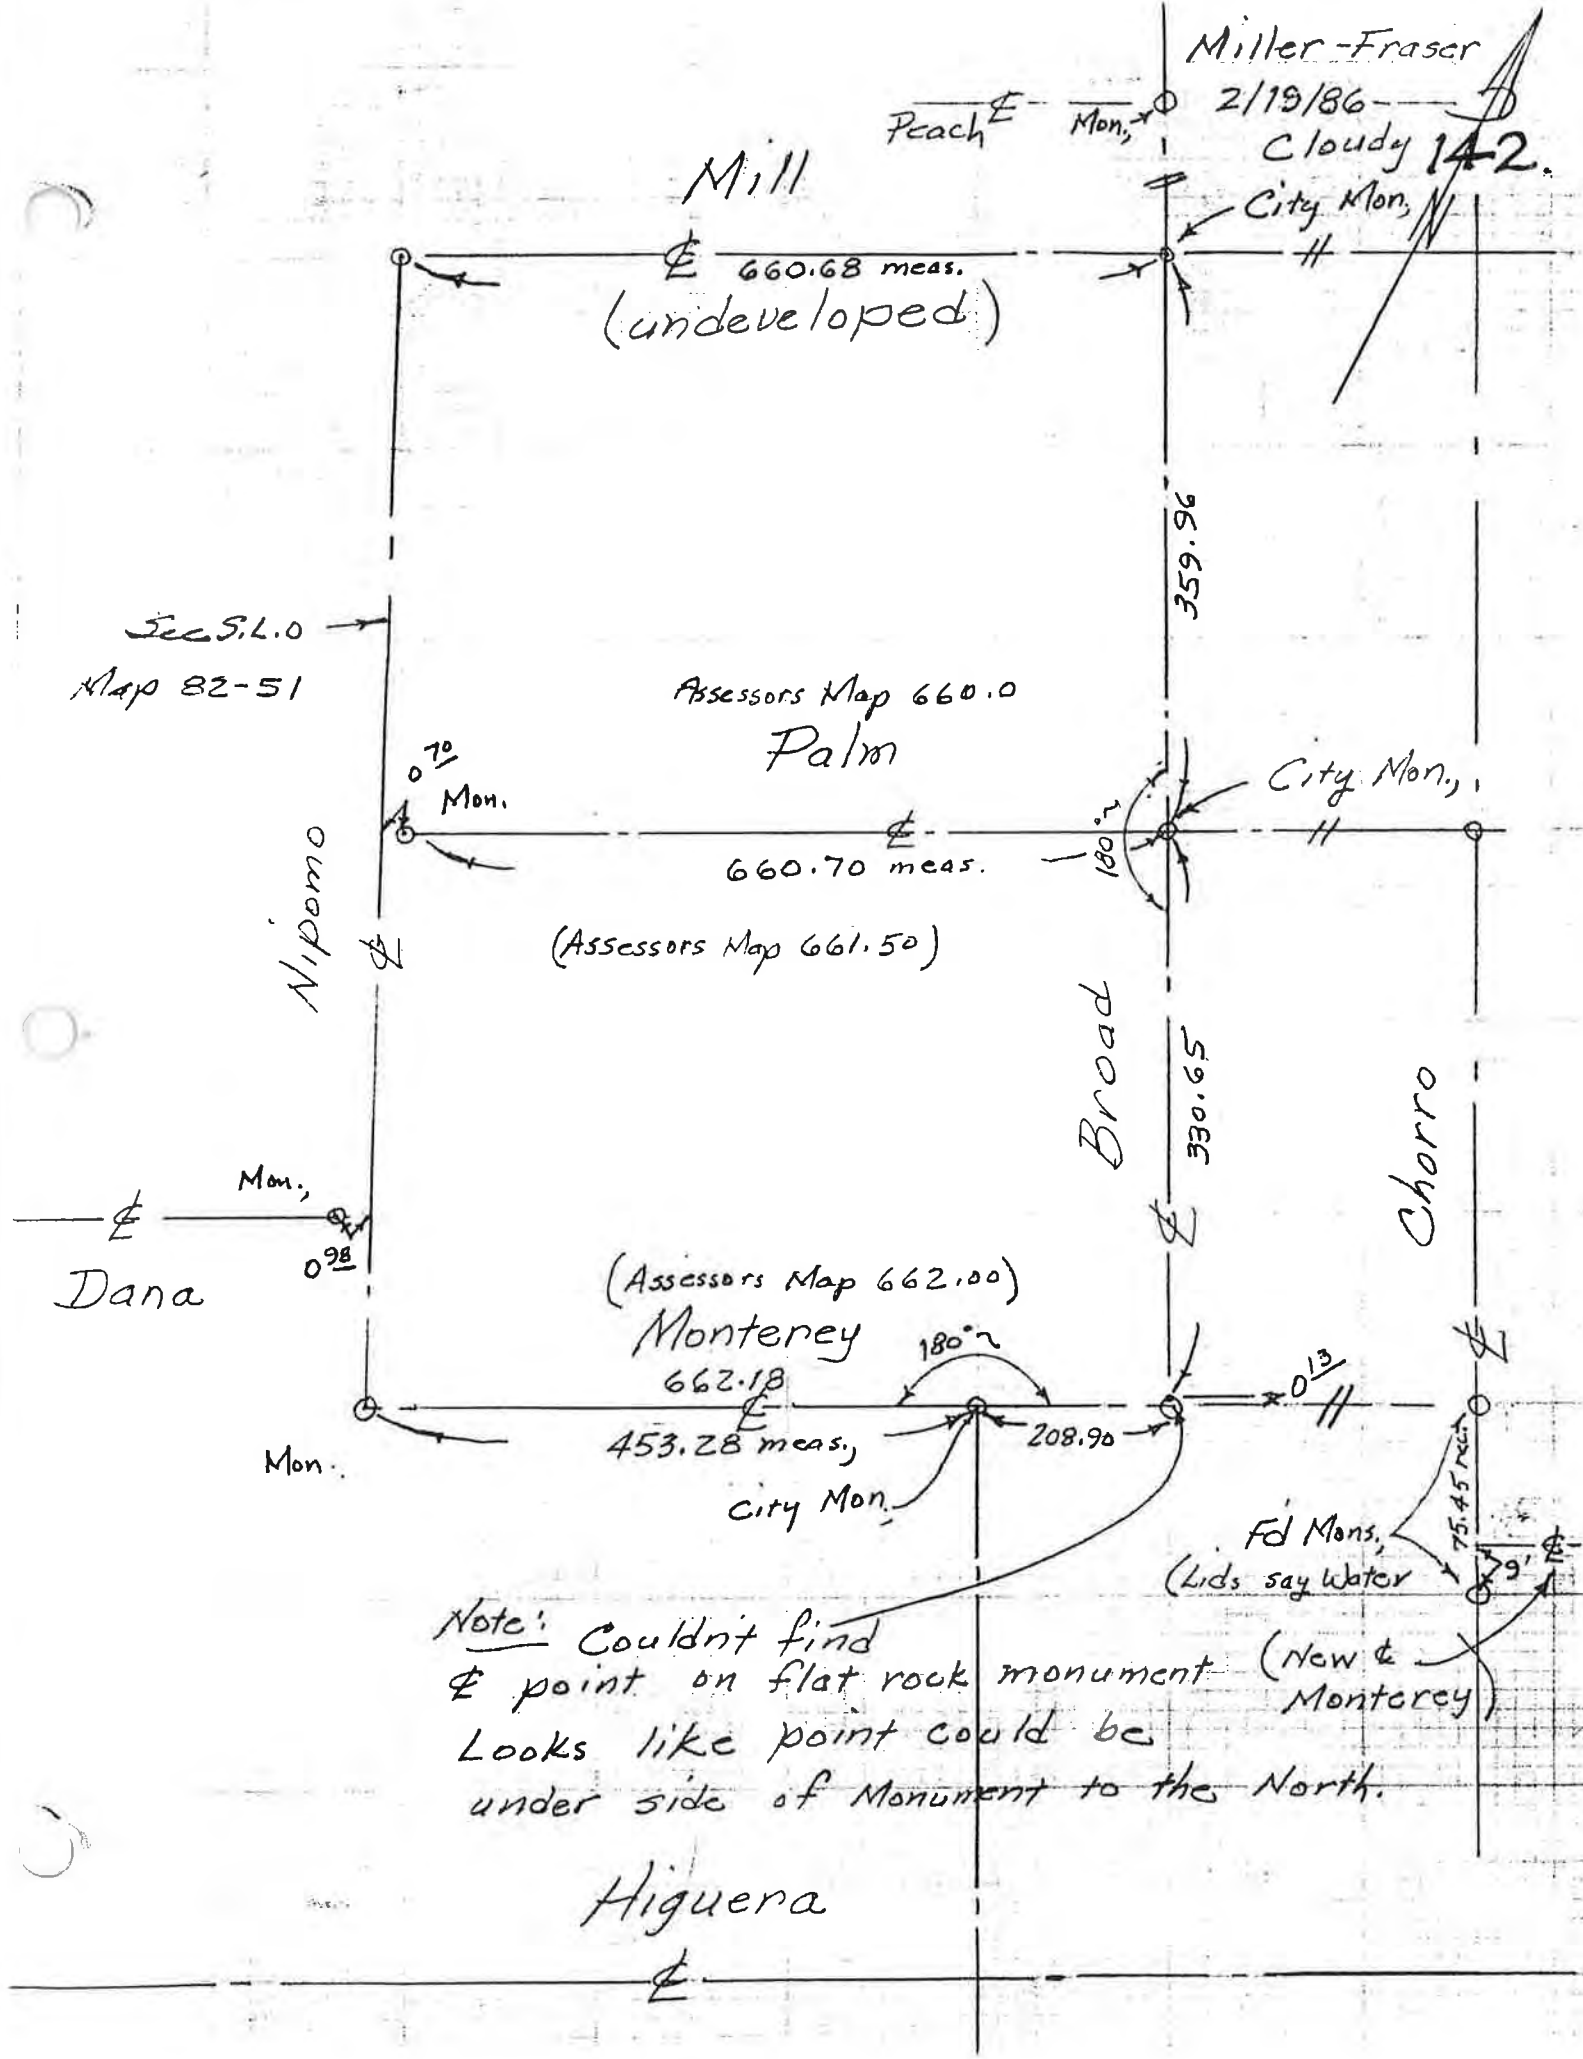 Miller-Fraser
2/19/86
Cloudy 142.
N
Peach ℄ Mon.,
Mill
City Mon,
℄ 660.68 meas.
(undeveloped)
359.96
See S.L.O
Map 82-51
Assessors Map 660.0
Palm
0 70
Mon.
City Mon.,
℄
660.70 meas.
180°
Nipomo
℄
(Assessors Map 661.50)
Broad
330.65
℄
Chorro
℄
Mon.,
℄
0 98
Dana
(Assessors Map 662.00)
Monterey
180°
662.18
℄
0 13
453.28 meas.,
208.90
Mon.
City Mon.
75.45 rec.
Fd Mons.,
(Lids say Water
9'
℄
Note: Couldn't find
℄ point on flat rock monument
Looks like point could be
under side of Monument to the North.
(New ℄
Monterey)
Higuera
℄